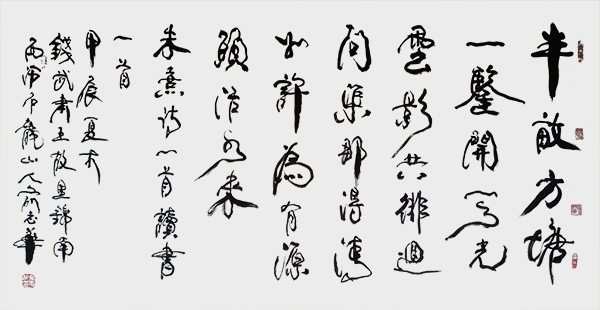 半畝方塘
一鑒開天光
雲影共徘徊
問渠那得清
如許為有源
頭活水來
朱熹詩一首讀書
一首
甲辰夏於
錢武肅王故里錦南
山人